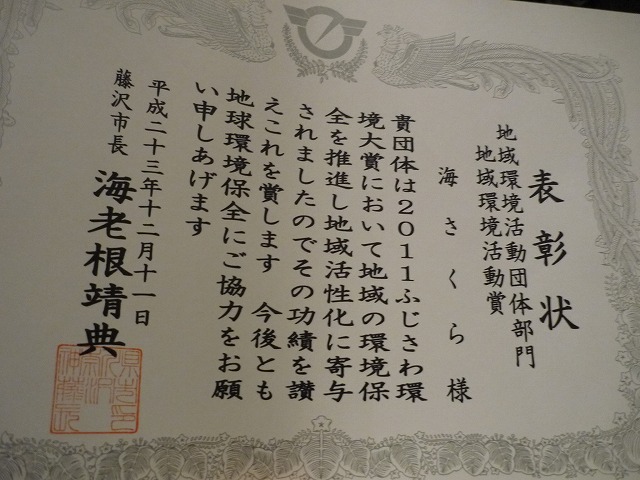 表彰状
地域環境活動団体部門
地域環境活動賞
海さくら様
貴団体は2011ふじさわ環
境大賞において地域の環境保
全を推進し地域活性化に寄与
されましたのでその功績を讃
えこれを賞します 今後とも
地球環境保全にご協力をお願
い申しあげます
平成二十三年十二月十一日
藤沢市長 海老根靖典